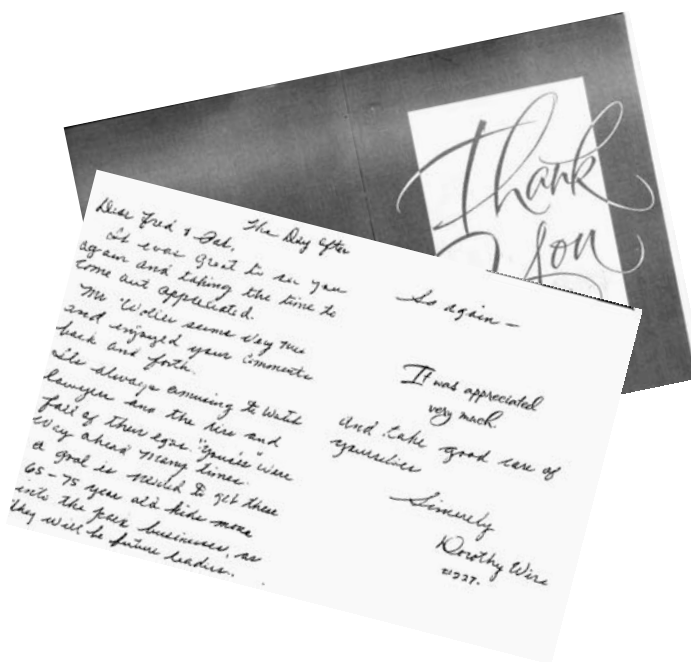 Thank
You
The Day After
Dear Fred &
It was great to see you
again and taking the time to
come out appreciated.
Mr seems very nice
and enjoyed your comments
back and forth.
It's always amusing to watch
lawyers and the rise and
fall of their egos. were
way ahead many times.
a goal is to get these
65-75 year old kids more
into the businesses, as
they will be future leaders.
So again -
It was appreciated
very much.
and take good care of
yourselves
Sincerely
Dorothy Wire